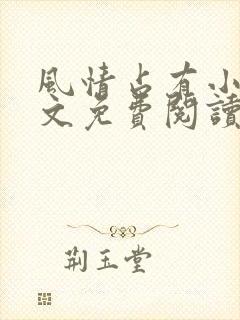 風情占有小
文免費閱讀
荆玉堂